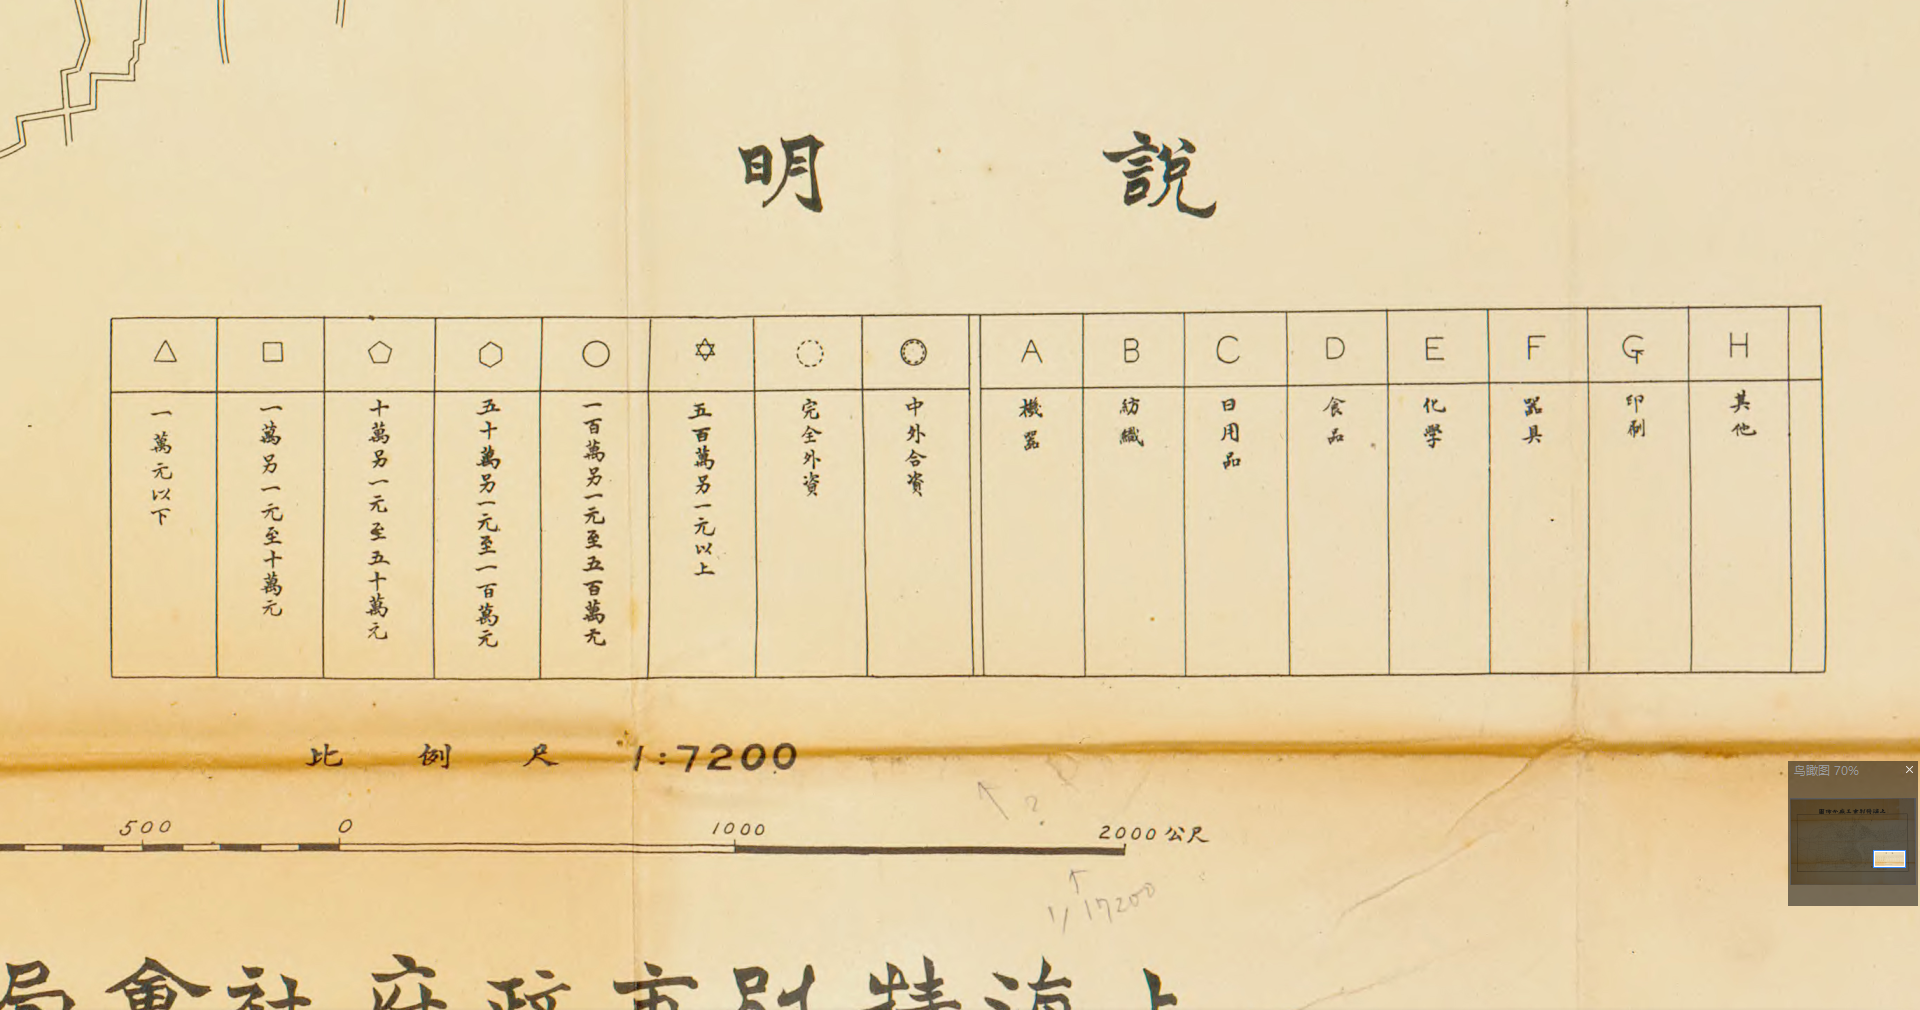 說明
△ 一萬元以下
□ 一萬另一元至十萬元
⬠ 十萬另一元至五十萬元
⬡ 五十萬另一元至一百萬元
○ 一百萬另一元至五百萬元
✡ 五百萬另一元以上
完全外資
中外合資
A 機器
B 紡織
C 日用品
D 食品
E 化學
F 器具
G 印刷
H 其他
比例尺 1:7200
500 0 1000 2000公尺
?
1/17200
上海特別市政府社會局
鸟瞰图 70%